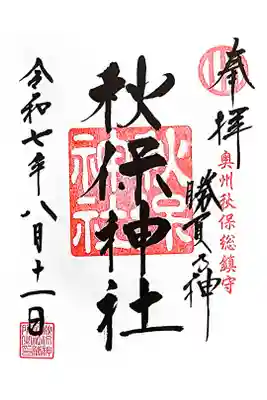 奉拝
奥州秋保総鎮守
勝負の神
秋保神社
令和七年八月十一日